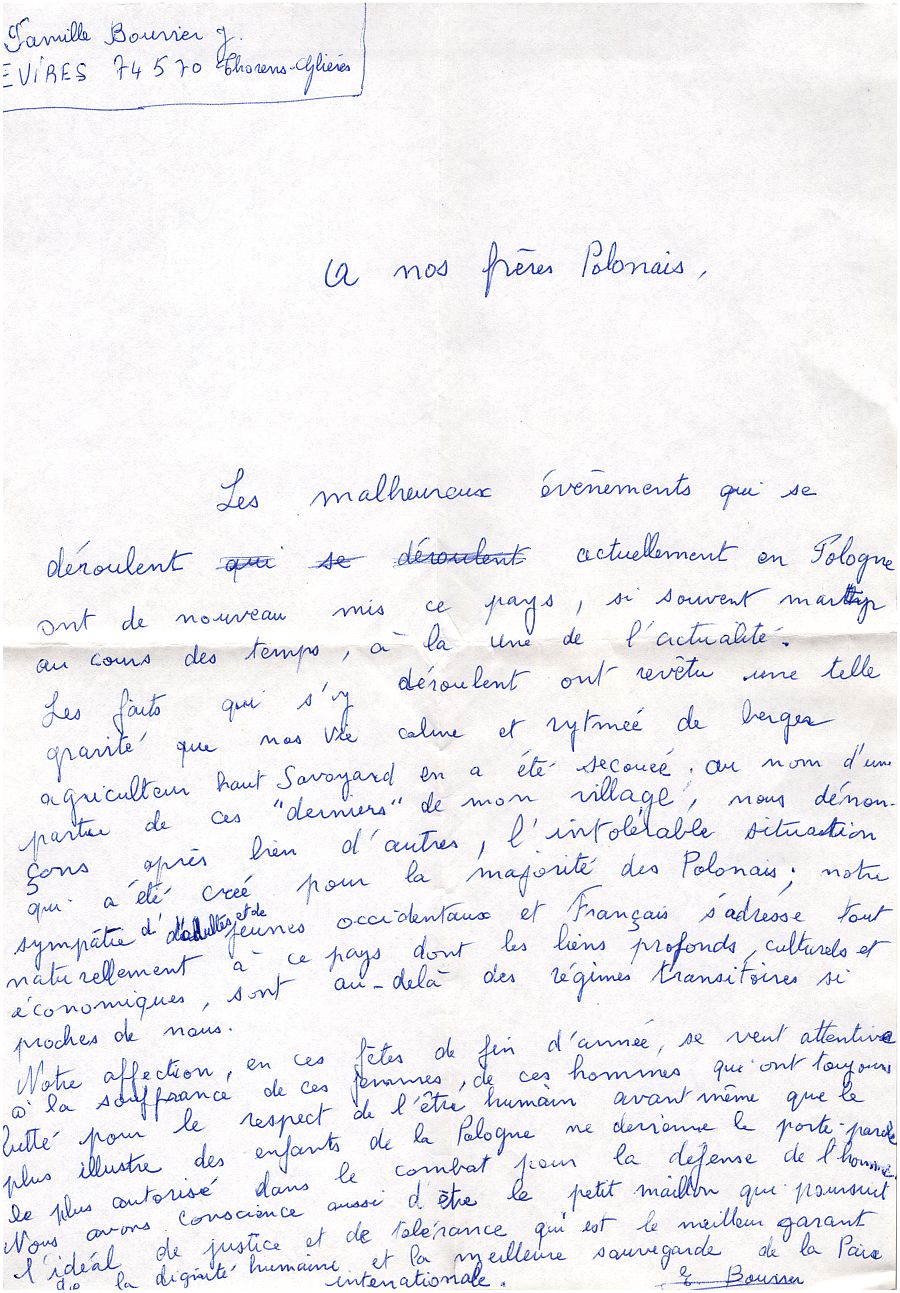 Famille Bouvier J.
EVIRES 74570 Thorens-Glières
A nos frères Polonais,
Les malheureux évenements qui se
déroulent qui se déroulent actuellement en Pologne
ont de nouveau mis ce pays, si souvent martyr
au cours des temps, à la une de l'actualité.
Les faits qui s'y déroulent ont revêtu une telle
gravité que nos vie calme et rytmée de berger
agriculteur haut Savoyard en a été secoué. Au nom d'une
partie de ces "derniers" de mon village, nous dénon-
çons après bien d'autres, l'intolérable situation
qui a été créé pour la majorité des Polonais; notre
sympatie d'adultes et de jeunes occidentaux et Français s'adresse tout
naturellement à ce pays dont les liens profonds, culturels et
économiques, sont au-delà des régimes transitoires si
proches de nous.
Notre affection, en ces fêtes de fin d'année, se veut attentive
à la souffrance de ces femmes, de ces hommes qui ont toujours
lutté pour le respect de l'être humain avant même que le
plus illustre des enfants de la Pologne ne devienne le porte-parole
le plus autorisé dans le combat pour la défense de l'homme.
Nous avons conscience aussi d'être le petit maillon qui poursuit
l'idéal de justice et de tolérance qui est le meilleur garant
de la dignité humaine et la meilleure sauvegarde de la Paix
internationale.